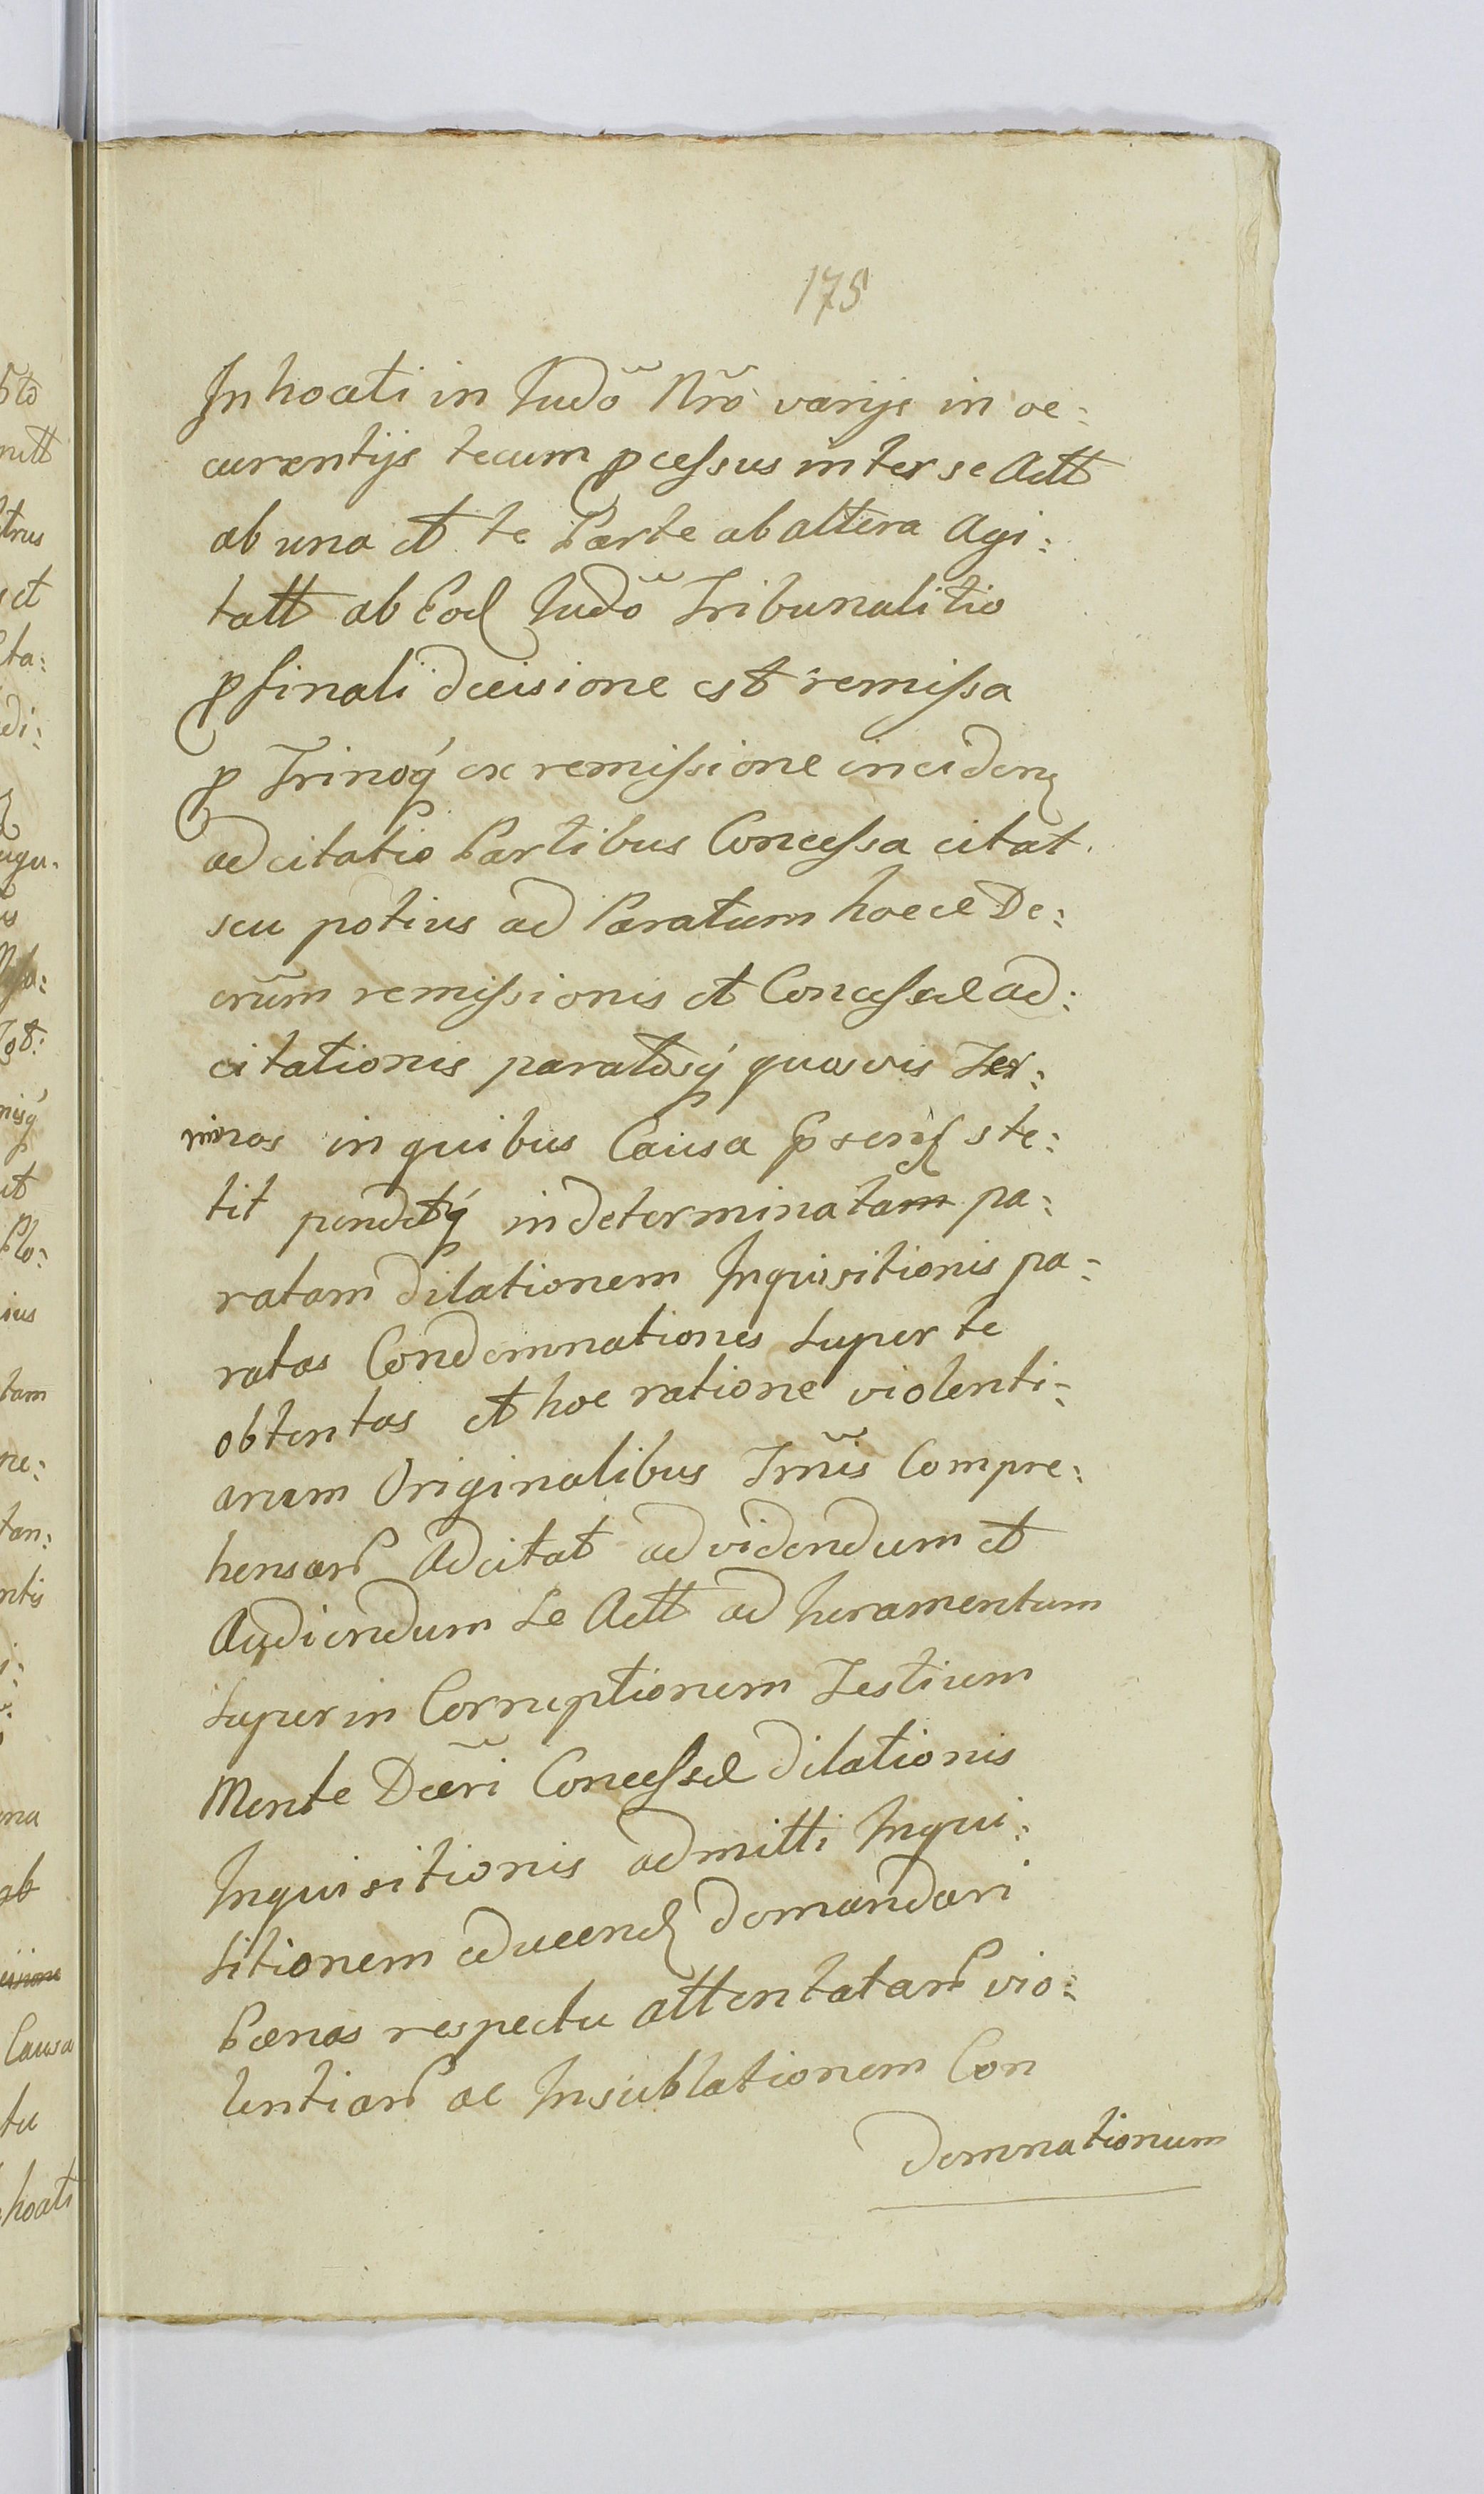 175
Inhoati in Iudõ Nrõ varijs in oc:
curentijs tecum pcessus inter se Actt
ab una et te Parte ab altera Agi:
tatt ab Eod Iudõ Tribunalitio
p finali decisione est remissa
p Trinoq́ ex remissione inciden
adcitatio Partibus Concessa citat.
seu potius ad Paratum hocce De:
crũm remissionis et Concessae ad:
citationis paratosq́ quosvis Ter:
minos in quibus Causa psens ste:
tit pendetq́ indeterminatam pa:
ratam dilationem Inquisitionis pa:
ratas Condemnationes super te
obtentas et hoc ratione violenti:
arum Originalibus Tm̃is Compre:
hensar Adcitat ad videndum et
Audiendum Se Actt ad Iuramentum
super in Corruptionem Testium
Mente Decr̃i Concessae dilationis
Inquisitionis admitti Inqui:
sitionem educend demandari
Paenas respectu attentatar vio:
lentiar ac Insublationem Con
demnationum